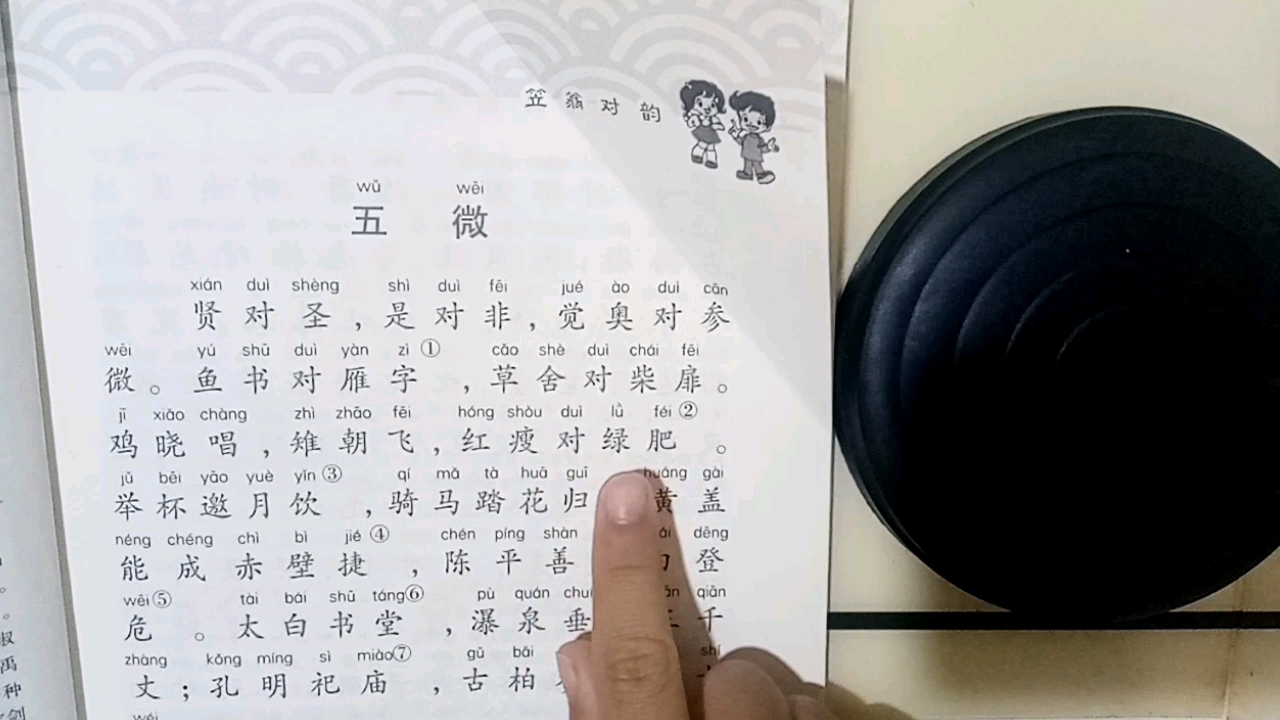 笠翁对韵
wǔ wēi
五 微
xián duì shèng shì duì fēi jué ào duì cān
贤对圣,是对非,觉奥对参
wēi yú shū duì yàn zì① cǎo shè duì chái fēi
微。鱼书对雁字,草舍对柴扉。
jī xiǎo chàng zhì zhāo fēi hóng shòu duì lǜ féi②
鸡晓唱,雉朝飞,红瘦对绿肥。
jǔ bēi yāo yuè yǐn③ qí mǎ tà huā guī huáng gài
举杯邀月饮,骑马踏花归 黄盖
néng chéng chì bì jié④ chén píng shàn dēng
能成赤壁捷,陈平善 登
wēi⑤ tài bái shū táng⑥ pù quán chuí qiān
危。太白书堂,瀑泉垂 千
zhàng kǒng míng sì miào⑦ gǔ bǎi
丈;孔明祀庙,古柏